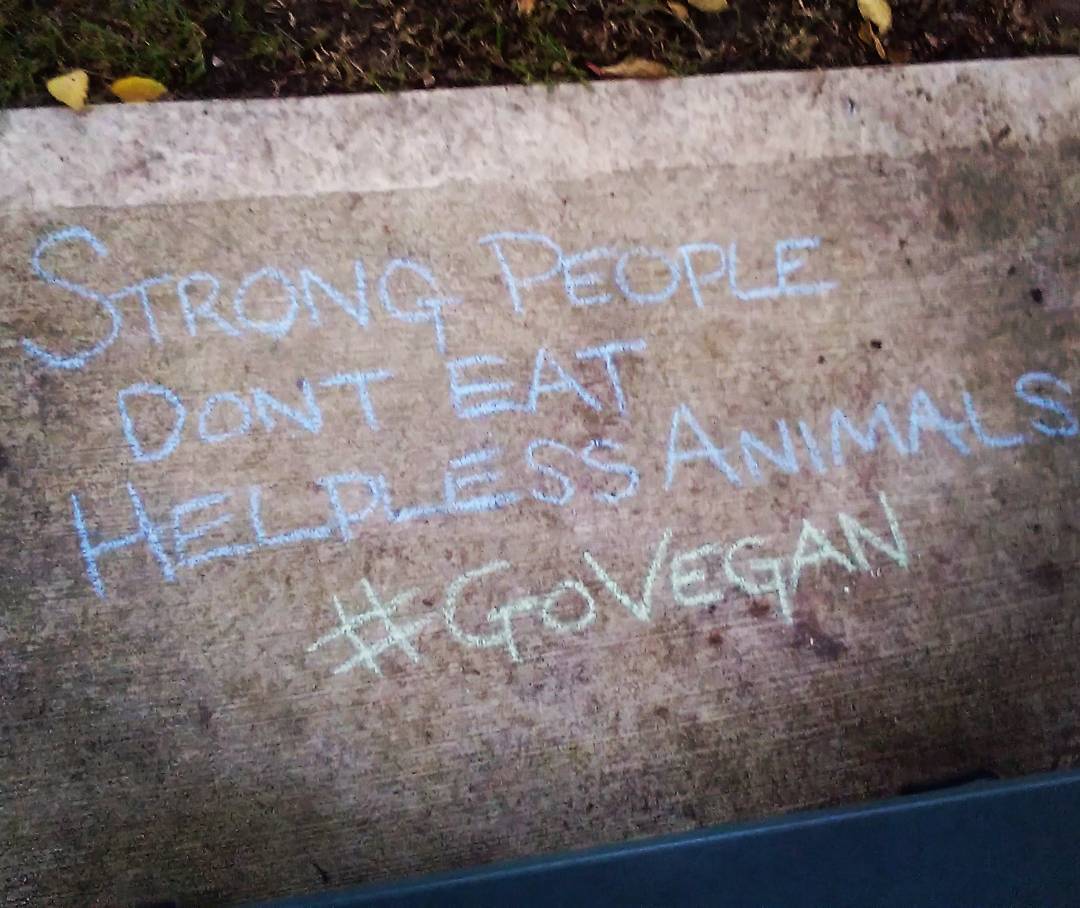 STRONG PEOPLE
DONT EAT
HELPLESS ANIMALS
#GOVEGAN